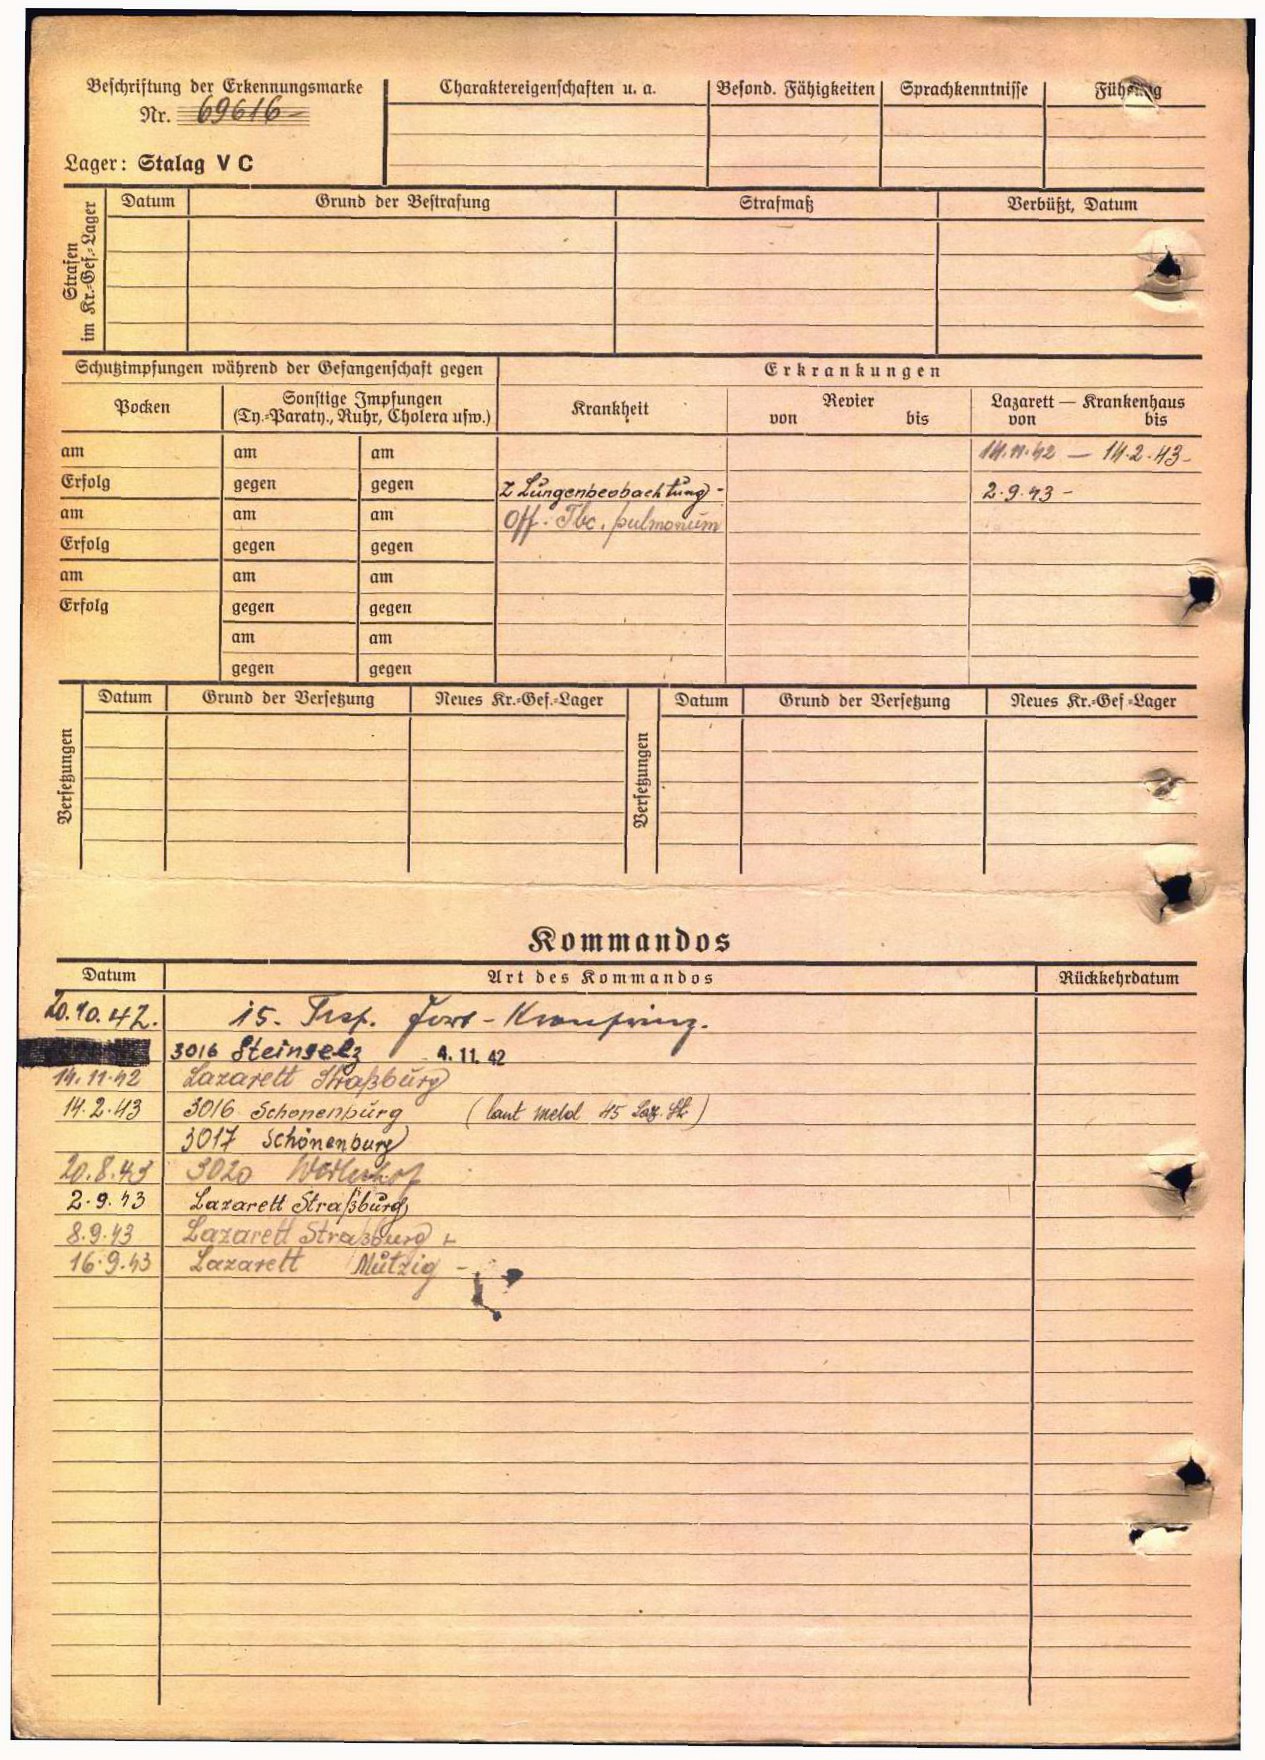 Beschriftung der Erkennungsmarke
Nr. 69616-
Lager: Stalag V C
Charaktereigenschaften u. a.
Besond. Fähigkeiten
Sprachkenntnisse
Führung
Strafen
im Kr.-Gef.-Lager
Datum
Grund der Bestrafung
Strafmaß
Verbüßt, Datum
Schutzimpfungen während der Gefangenschaft gegen
Erkrankungen
Pocken
Sonstige Impfungen
(Ty.-Paraty., Ruhr, Cholera usw.)
Krankheit
Revier
von bis
Lazarett — Krankenhaus
von bis
am am am 14.11.42 — 14.2.43-
Erfolg gegen gegen Z Lungenbeobachtung - 2.9.43 -
am am am Off. Tbc. pulmonum
Erfolg gegen gegen
am am am
Erfolg gegen gegen
am am
gegen gegen
Versetzungen
Datum Grund der Versetzung Neues Kr.-Gef.-Lager
Versetzungen
Datum Grund der Versetzung Neues Kr.-Gef-Lager
Kommandos
Datum Art des Kommandos Rückkehrdatum
20.10.42. 15. Trsp. Fort-Kronprinz.
3016 Steinselz 4.11.42
14.11.42 Lazarett Straßburg
14.2.43 3016 Schonenburg (laut Meld 45 Laz. St.)
3017 Schönenburg
20.8.43 3020
2.9.43 Lazarett Straßburg
8.9.43 Lazarett Straßburg
16.9.43 Lazarett Mutzig -